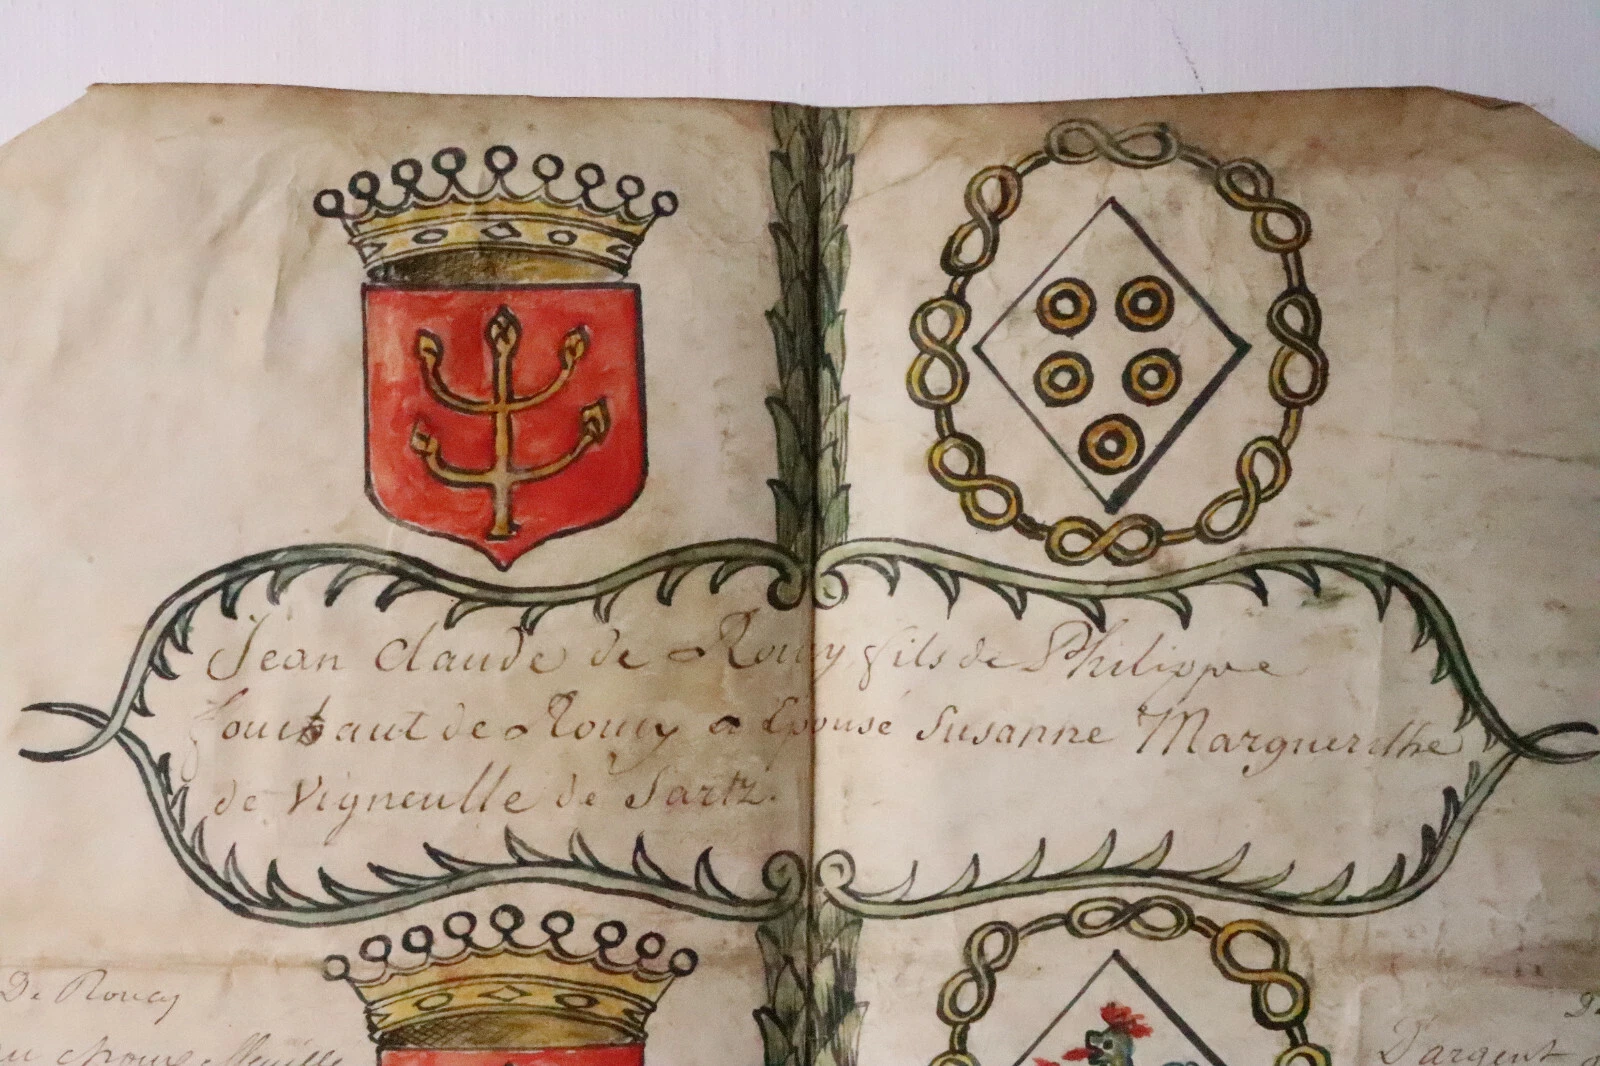 Jean Claude de Roucy fils de Philippe
foucaut de Roucy a Epousé Susanne Marguerithe
de Vigneulle de Sartz.
De Roucy
au chou
D'argent